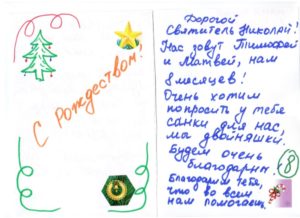 С Рождеством!
Дорогой
Святитель Николай!
Нас зовут Тимофей
и Матвей, нам
8 месяцев!
Очень хотим
попросить у тебя
санки для нас,
мы двойняшки.
Будем очень
благодарны.
Благодарим Тебя,
что во всем
нам помогаешь
8